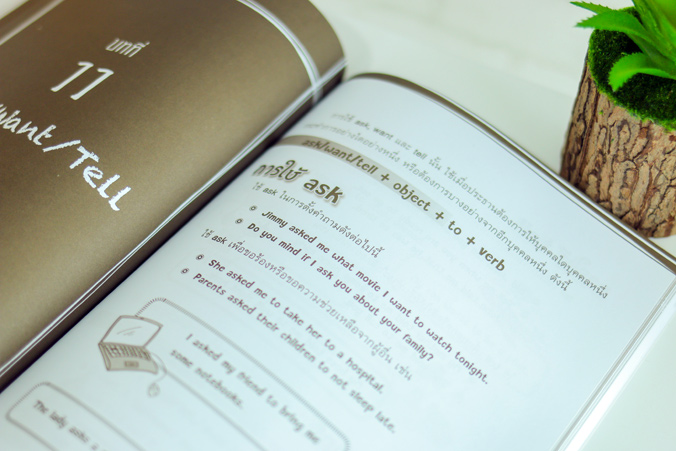 บทที่
11
Want/Tell
การใช้ ask, want และ tell นั้น ใช้เมื่อประธานต้องการให้บุคคลใดบุคคลหนึ่ง
กระทำการอย่างใดอย่างหนึ่ง หรือต้องการบางอย่างจากอีกบุคคลหนึ่ง ดังนี้
ask/want/tell + object + to + verb
การใช้ ask
ใช้ ask ในการตั้งคำถามดังต่อไปนี้
Jimmy asked me what movie I want to watch tonight.
Do you mind if I ask you about your family?
ใช้ ask เพื่อขอร้องหรือขอความช่วยเหลือจากผู้อื่น เช่น
She asked me to take her to a hospital.
Parents asked their children to not sleep late.
I asked my friend to bring me
some notebooks.
The lady asks a